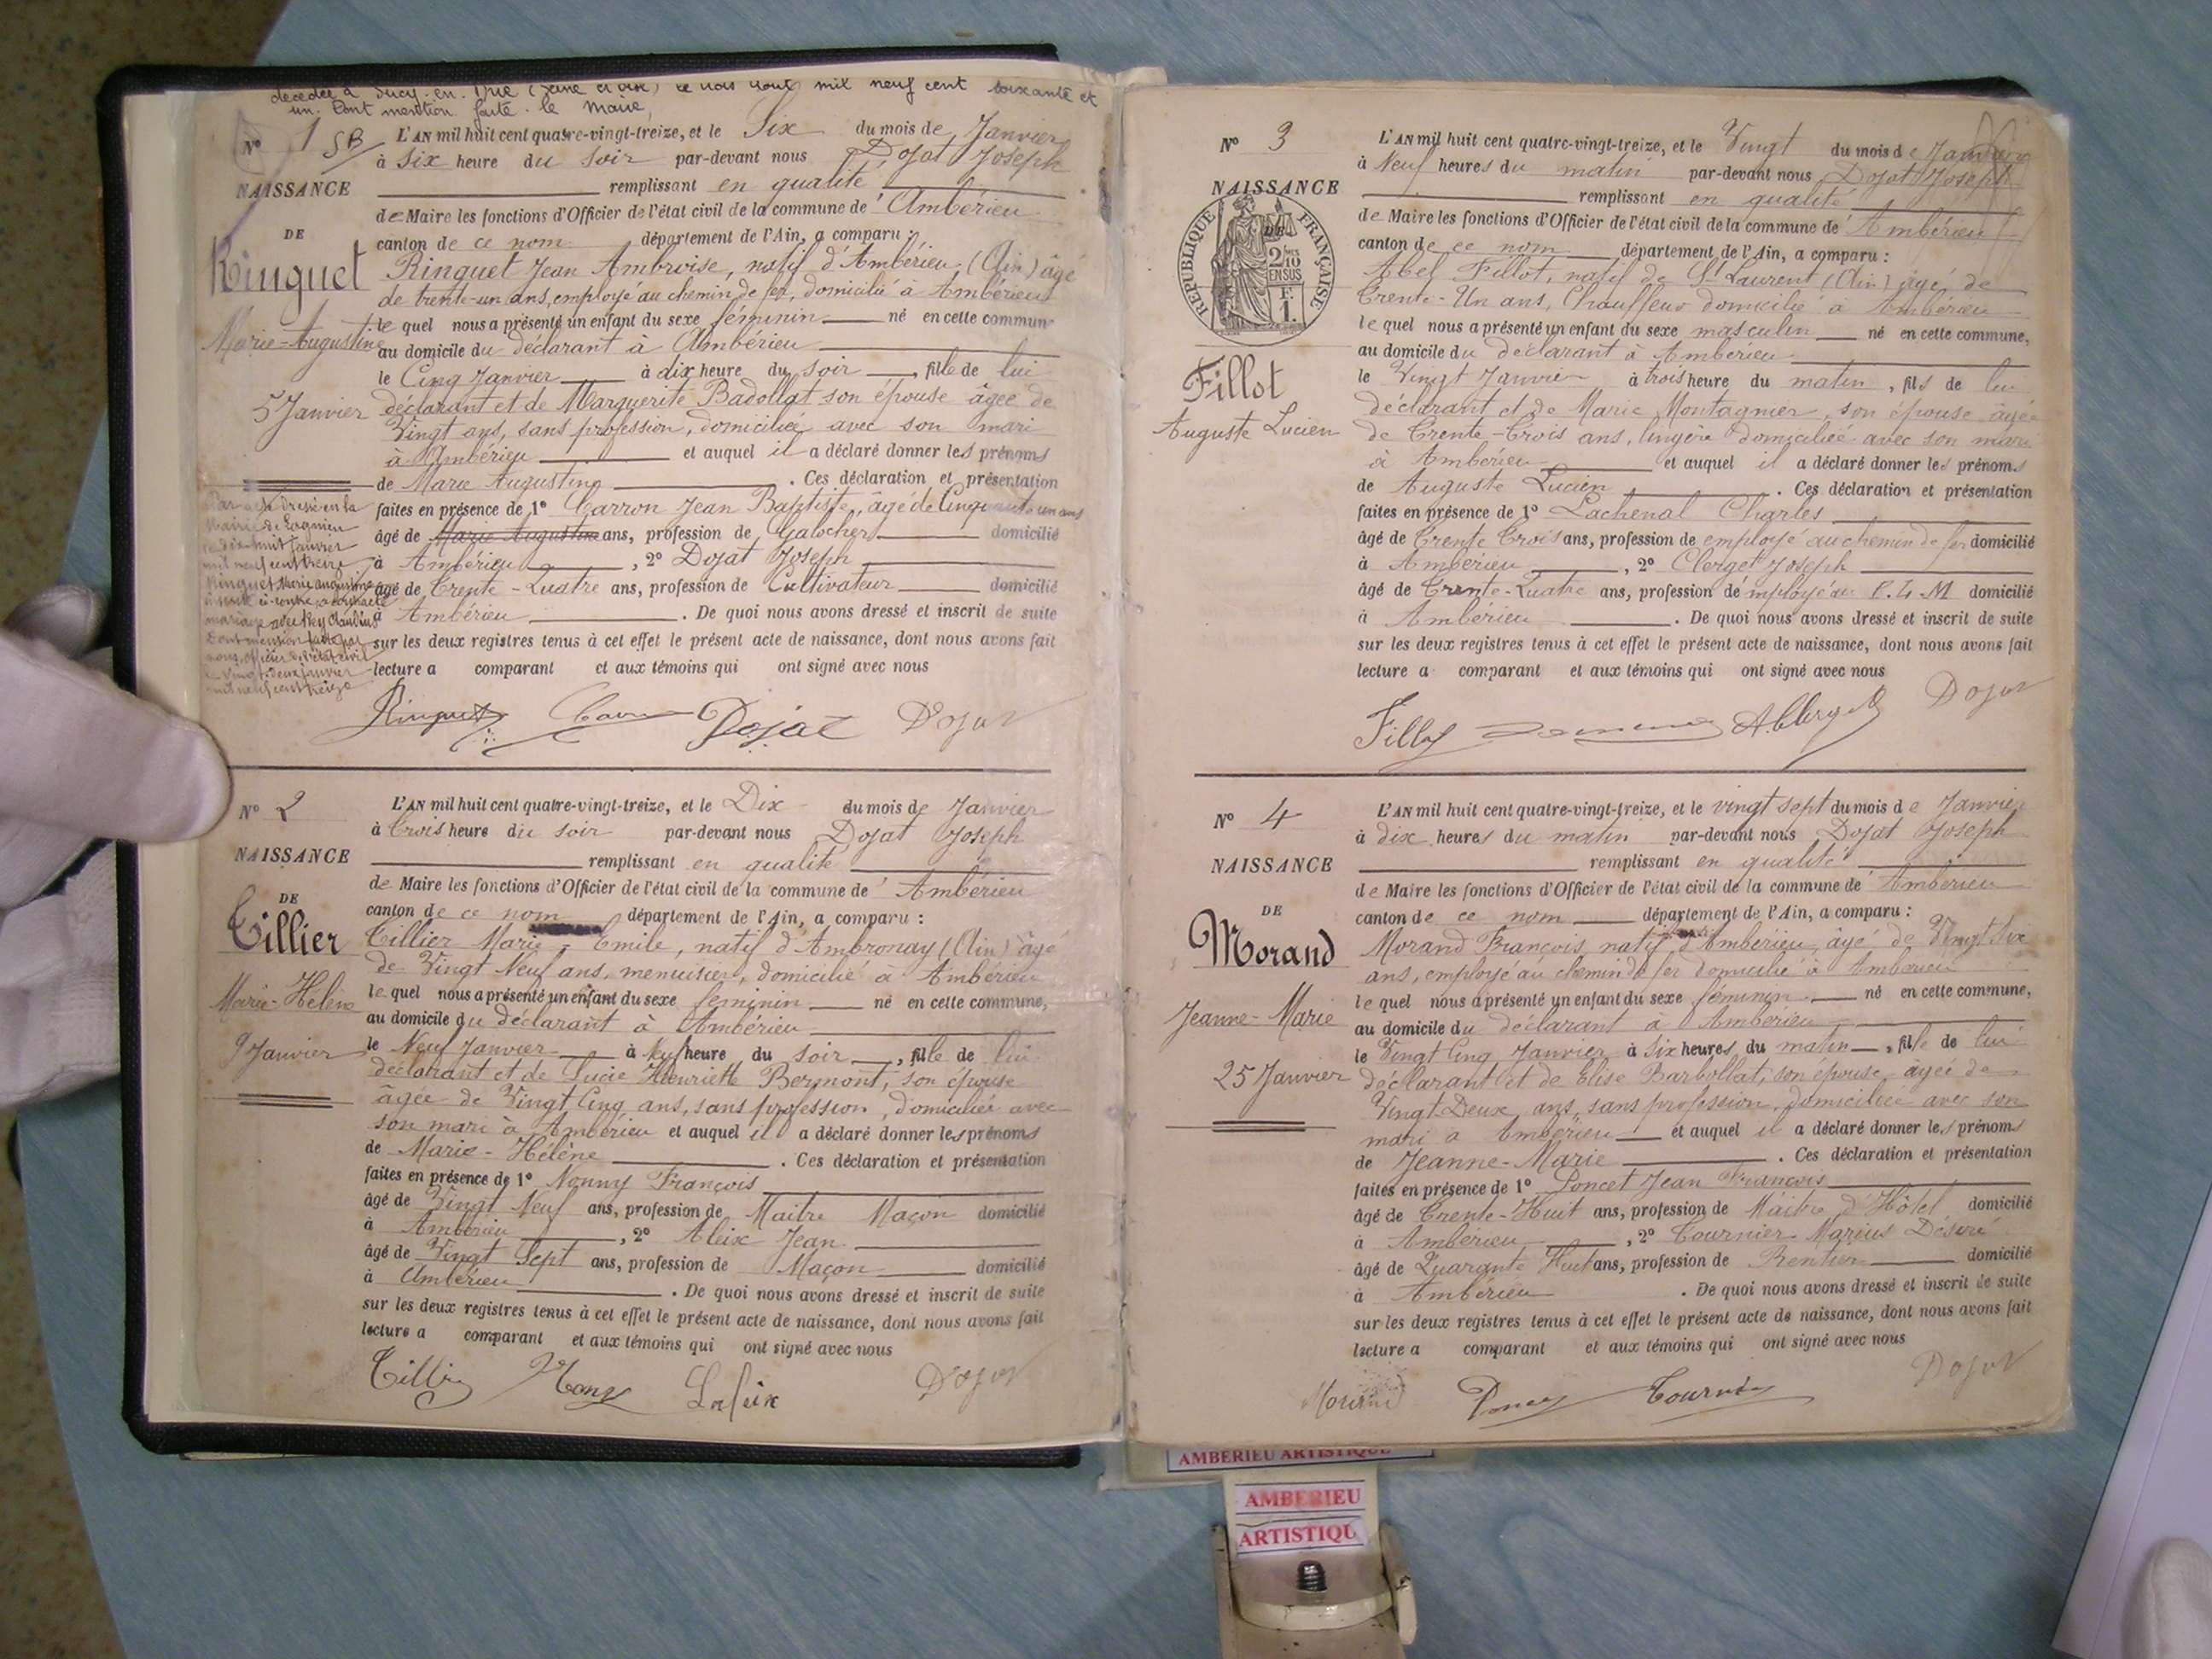 décédée à Sucy-en-Brie (Seine et Oise) le trois août mil neuf cent soixante et
un. Dont mention faite. le Maire,
N° 1 SB
NAISSANCE
DE
Ringuet
Marie-Augustine
5 Janvier
L'AN mil huit cent quatre-vingt-treize, et le Six du mois de Janvier
à Six heure du Soir par-devant nous Dojat Joseph
remplissant en qualité
de Maire les fonctions d'Officier de l'état civil de la commune de Ambérieu
canton de ce nom département de l'Ain, a comparu :
Ringuet Jean Ambroise, natif d'Ambérieu (Ain) âgé
de trente-un ans, employé au chemin de fer, domicilié à Ambérieu
le quel nous a présenté un enfant du sexe féminin né en cette commune
au domicile du déclarant à Ambérieu
le Cinq Janvier à dix heure du soir, fille de lui
déclarant et de Marguerite Badollat son épouse âgée de
Vingt ans, sans profession, domiciliée avec son mari
à Ambérieu et auquel il a déclaré donner les prénoms
de Marie Augustine. Ces déclaration et présentation
faites en présence de 1° Carron Jean Baptiste, âgé de Cinquante un ans
âgé de Marie Augustine ans, profession de Galocher domicilié
à Ambérieu, 2° Dojat Joseph
âgé de Trente-Quatre ans, profession de Cultivateur domicilié
à Ambérieu. De quoi nous avons dressé et inscrit de suite
sur les deux registres tenus à cet effet le présent acte de naissance, dont nous avons fait
lecture a comparant et aux témoins qui ont signé avec nous
Par acte dressé en la
Mairie de Lagnieu
le dix-huit Janvier
mil neuf cent treize
Ringuet Marie Augustine
ci-contre, a contracté
mariage avec Rey Claudius
Dont mention faite par
nous, officier de l'état civil
le vingt-deux Janvier
mil neuf cent treize
Ringuet Dojat Dojat
N° 2
NAISSANCE
DE
Tillier
Marie-Hélène
9 Janvier
L'AN mil huit cent quatre-vingt-treize, et le Dix du mois de Janvier
à Trois heure du Soir par-devant nous Dojat Joseph
remplissant en qualité
de Maire les fonctions d'Officier de l'état civil de la commune de Ambérieu
canton de ce nom département de l'Ain, a comparu :
Tillier Marie-Emile, natif d'Ambronay (Ain) âgé
de Vingt Neuf ans, menuisier, domicilié à Ambérieu
le quel nous a présenté un enfant du sexe féminin né en cette commune,
au domicile du déclarant à Ambérieu
le Neuf Janvier à Neuf heure du soir, fille de lui
déclarant et de Lucie Henriette Bermont, son épouse
âgée de Vingt Cinq ans, sans profession, domiciliée avec
son mari à Ambérieu et auquel il a déclaré donner les prénoms
de Marie-Hélène. Ces déclaration et présentation
faites en présence de 1° Nonny François
âgé de Vingt Neuf ans, profession de Maître Maçon domicilié
à Ambérieu, 2° Aleix Jean
âgé de Vingt Sept ans, profession de Maçon domicilié
à Ambérieu. De quoi nous avons dressé et inscrit de suite
sur les deux registres tenus à cet effet le présent acte de naissance, dont nous avons fait
lecture a comparant et aux témoins qui ont signé avec nous
Tillier Dojat
N° 3
NAISSANCE
DE
RÉPUBLIQUE FRANÇAISE
2/10 EN SUS
F. 1.
Fillot
Auguste Lucien
L'AN mil huit cent quatre-vingt-treize, et le Vingt du mois de Janvier
à Neuf heures du matin par-devant nous Dojat Joseph
remplissant en qualité
de Maire les fonctions d'Officier de l'état civil de la commune de Ambérieu
canton de ce nom département de l'Ain, a comparu :
Abel Fillot, natif de St Laurent (Ain) âgé de
Trente-Un ans, Chauffeur domicilié à Ambérieu
le quel nous a présenté un enfant du sexe masculin né en cette commune,
au domicile du déclarant à Ambérieu
le Vingt Janvier à trois heure du matin, fils de lui
déclarant et de Marie Montagnier, son épouse âgée
de Trente-Trois ans, lingère domiciliée avec son mari
à Ambérieu et auquel il a déclaré donner les prénoms
de Auguste Lucien. Ces déclaration et présentation
faites en présence de 1° Lachenal Charles
âgé de Trente Trois ans, profession de employé au chemin de fer domicilié
à Ambérieu, 2° Clerget Joseph
âgé de Trente-Quatre ans, profession de employé au P.L.M domicilié
à Ambérieu. De quoi nous avons dressé et inscrit de suite
sur les deux registres tenus à cet effet le présent acte de naissance, dont nous avons fait
lecture a comparant et aux témoins qui ont signé avec nous
Fillot A. Clerget Dojat
N° 4
NAISSANCE
DE
Morand
Jeanne-Marie
25 Janvier
L'AN mil huit cent quatre-vingt-treize, et le vingt sept du mois de Janvier
à dix heures du matin par-devant nous Dojat Joseph
remplissant en qualité
de Maire les fonctions d'Officier de l'état civil de la commune de Ambérieu
canton de ce nom département de l'Ain, a comparu :
Morand François, natif d'Ambérieu, âgé de Vingt Six
ans, employé au chemin de fer domicilié à Ambérieu
le quel nous a présenté un enfant du sexe féminin né en cette commune,
au domicile du déclarant à Ambérieu
le Vingt Cinq Janvier à Six heures du matin, fille de lui
déclarant et de Elise Barbollat, son épouse, âgée de
Vingt-Deux ans, sans profession, domiciliée avec son
mari à Ambérieu et auquel il a déclaré donner les prénoms
de Jeanne-Marie. Ces déclaration et présentation
faites en présence de 1° Poncet Jean François
âgé de Trente-Huit ans, profession de Maître d'Hôtel domicilié
à Ambérieu, 2° Tournier Marius Désiré
âgé de Quarante Huit ans, profession de Rentier domicilié
à Ambérieu. De quoi nous avons dressé et inscrit de suite
sur les deux registres tenus à cet effet le présent acte de naissance, dont nous avons fait
lecture a comparant et aux témoins qui ont signé avec nous
Morand Poncet Tournier Dojat
AMBERIEU ARTISTIQUE
AMBERIEU
ARTISTIQU